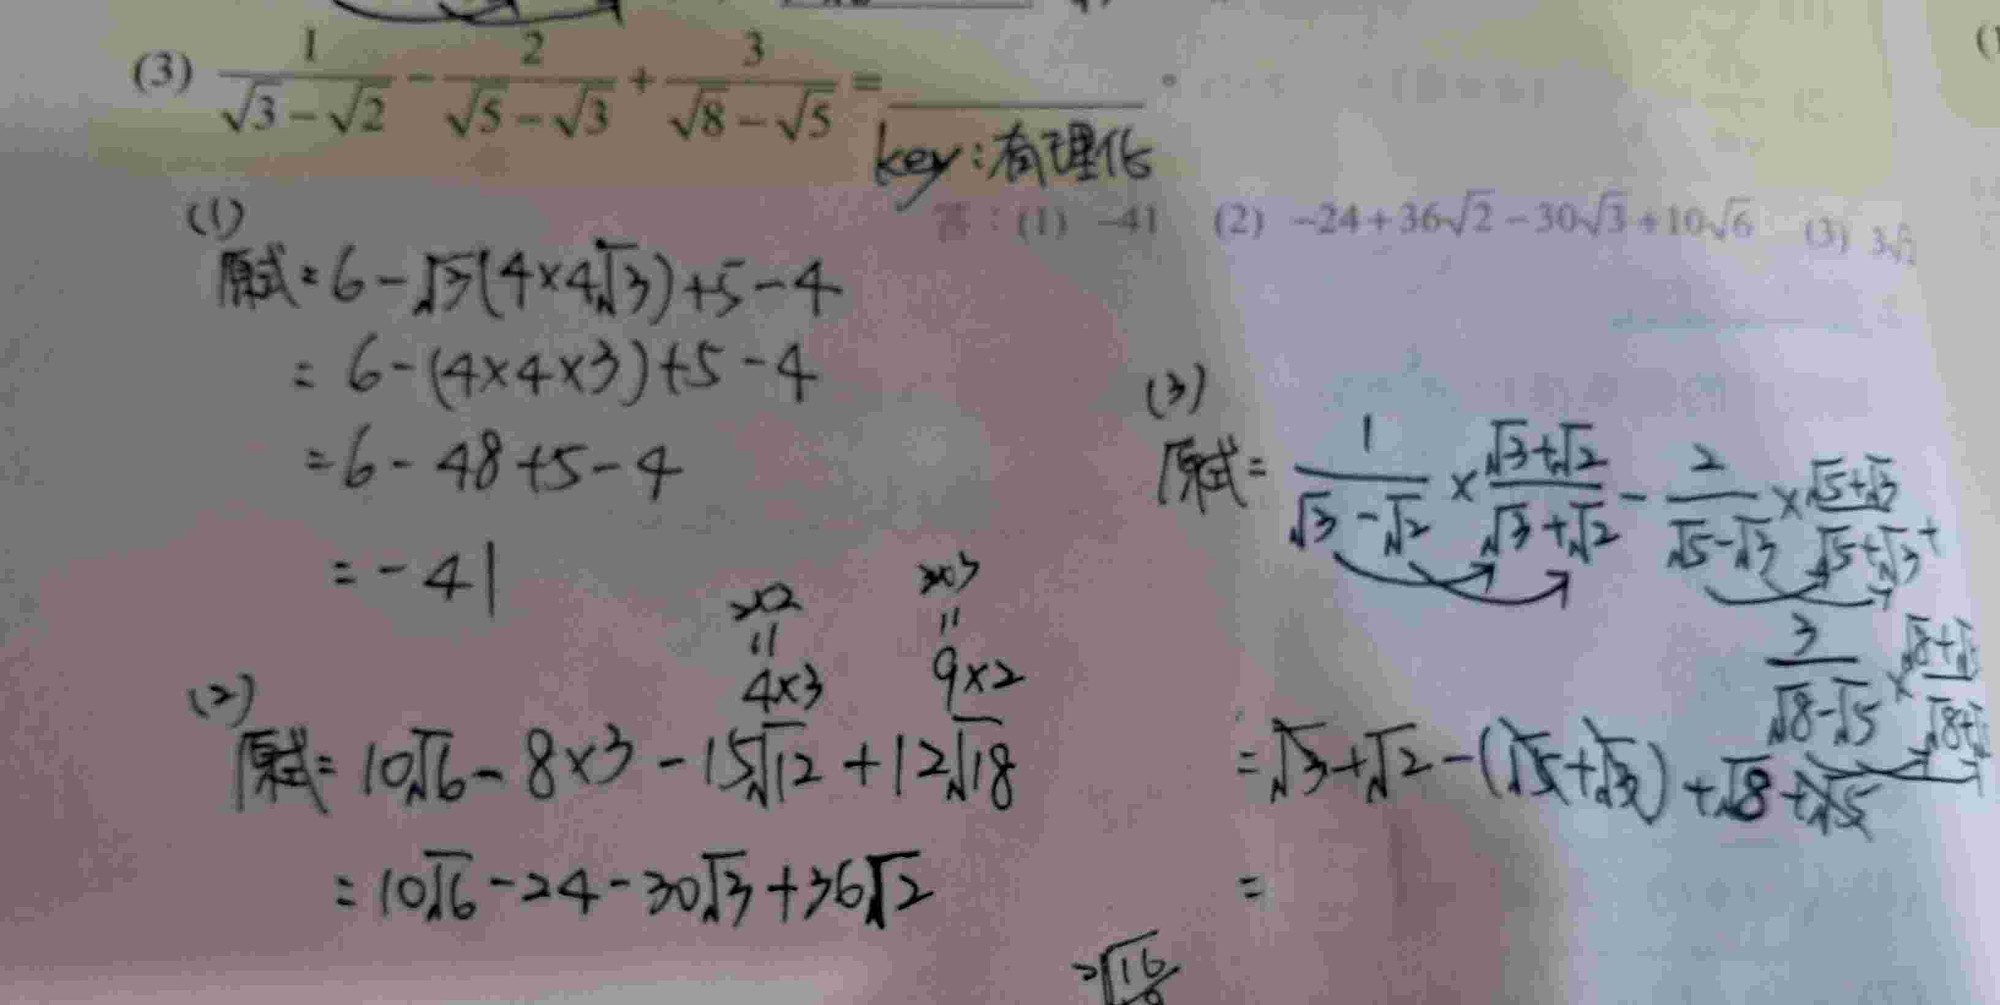 (3) 1/(√3−√2) − 2/(√5−√3) + 3/(√8−√5) = ________ 。
key:有理化
答:(1) −41 (2) −24+36√2−30√3+10√6 (3) 3√2
(1)
原式=6−√3(4×4√3)+5−4
=6−(4×4×3)+5−4
=6−48+5−4
=−41
(2)
2×2
3×3
=
=
4×3
9×2
原式=10√6−8×3−15√12+12√18
=10√6−24−30√3+36√2
(3)
原式=1/(√3−√2)×(√3+√2)/(√3+√2)−2/(√5−√3)×(√5+√3)/(√5+√3)+
3/(√8−√5)×
=√3+√2−(√5+√3)+√8+√5
=